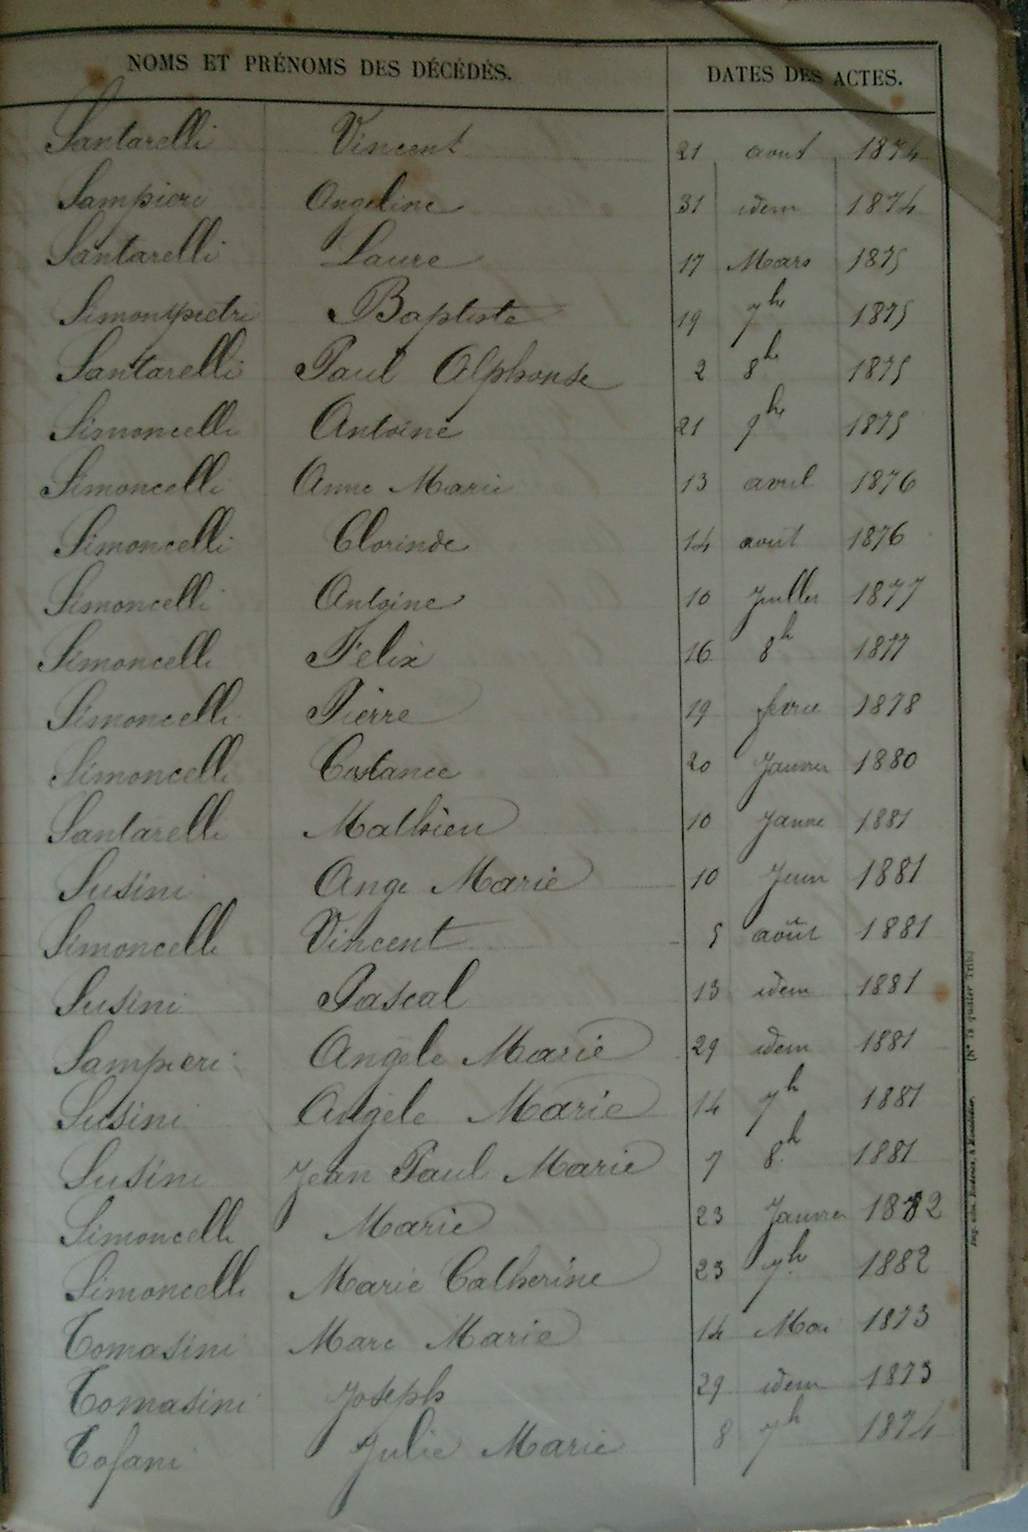 NOMS ET PRÉNOMS DES DÉCÉDÉS. DATES DES ACTES.
Santarelli Vincent 21 aout 1874
Sampieri Angeline 31 idem 1874
Santarelli Laure 17 Mars 1875
Simonpietri Baptiste 19 7bre 1875
Santarelli Paul Alphonse 2 8b 1875
Simoncelli Antoine 21 9bre 1875
Simoncelli Anne Marie 13 avril 1876
Simoncelli Clorinde 14 aout 1876
Simoncelli Antoine 10 Juillet 1877
Simoncelli Felix 16 8b 1877
Simoncelli Pierre 19 fevrie 1878
Simoncelli Costance 20 Janvier 1880
Santarelli Mathieu 10 Janvie 1881
Susini Ange Marie 10 Juin 1881
Simoncelli Vincent 5 août 1881
Susini Pascal 13 idem 1881
Sampieri Angèle Marie 29 idem 1881
Susini Angèle Marie 14 7b 1881
Susini Jean Paul Marie 7 8b 1881
Simoncelli Marie 23 Janvier 1882
Simoncelli Marie Catherine 23 7b 1882
Tomasini Marc Marie 14 Mai 1873
Tomasini Joseph 29 idem 1873
Tofani Julie Marie 8 7b 1874